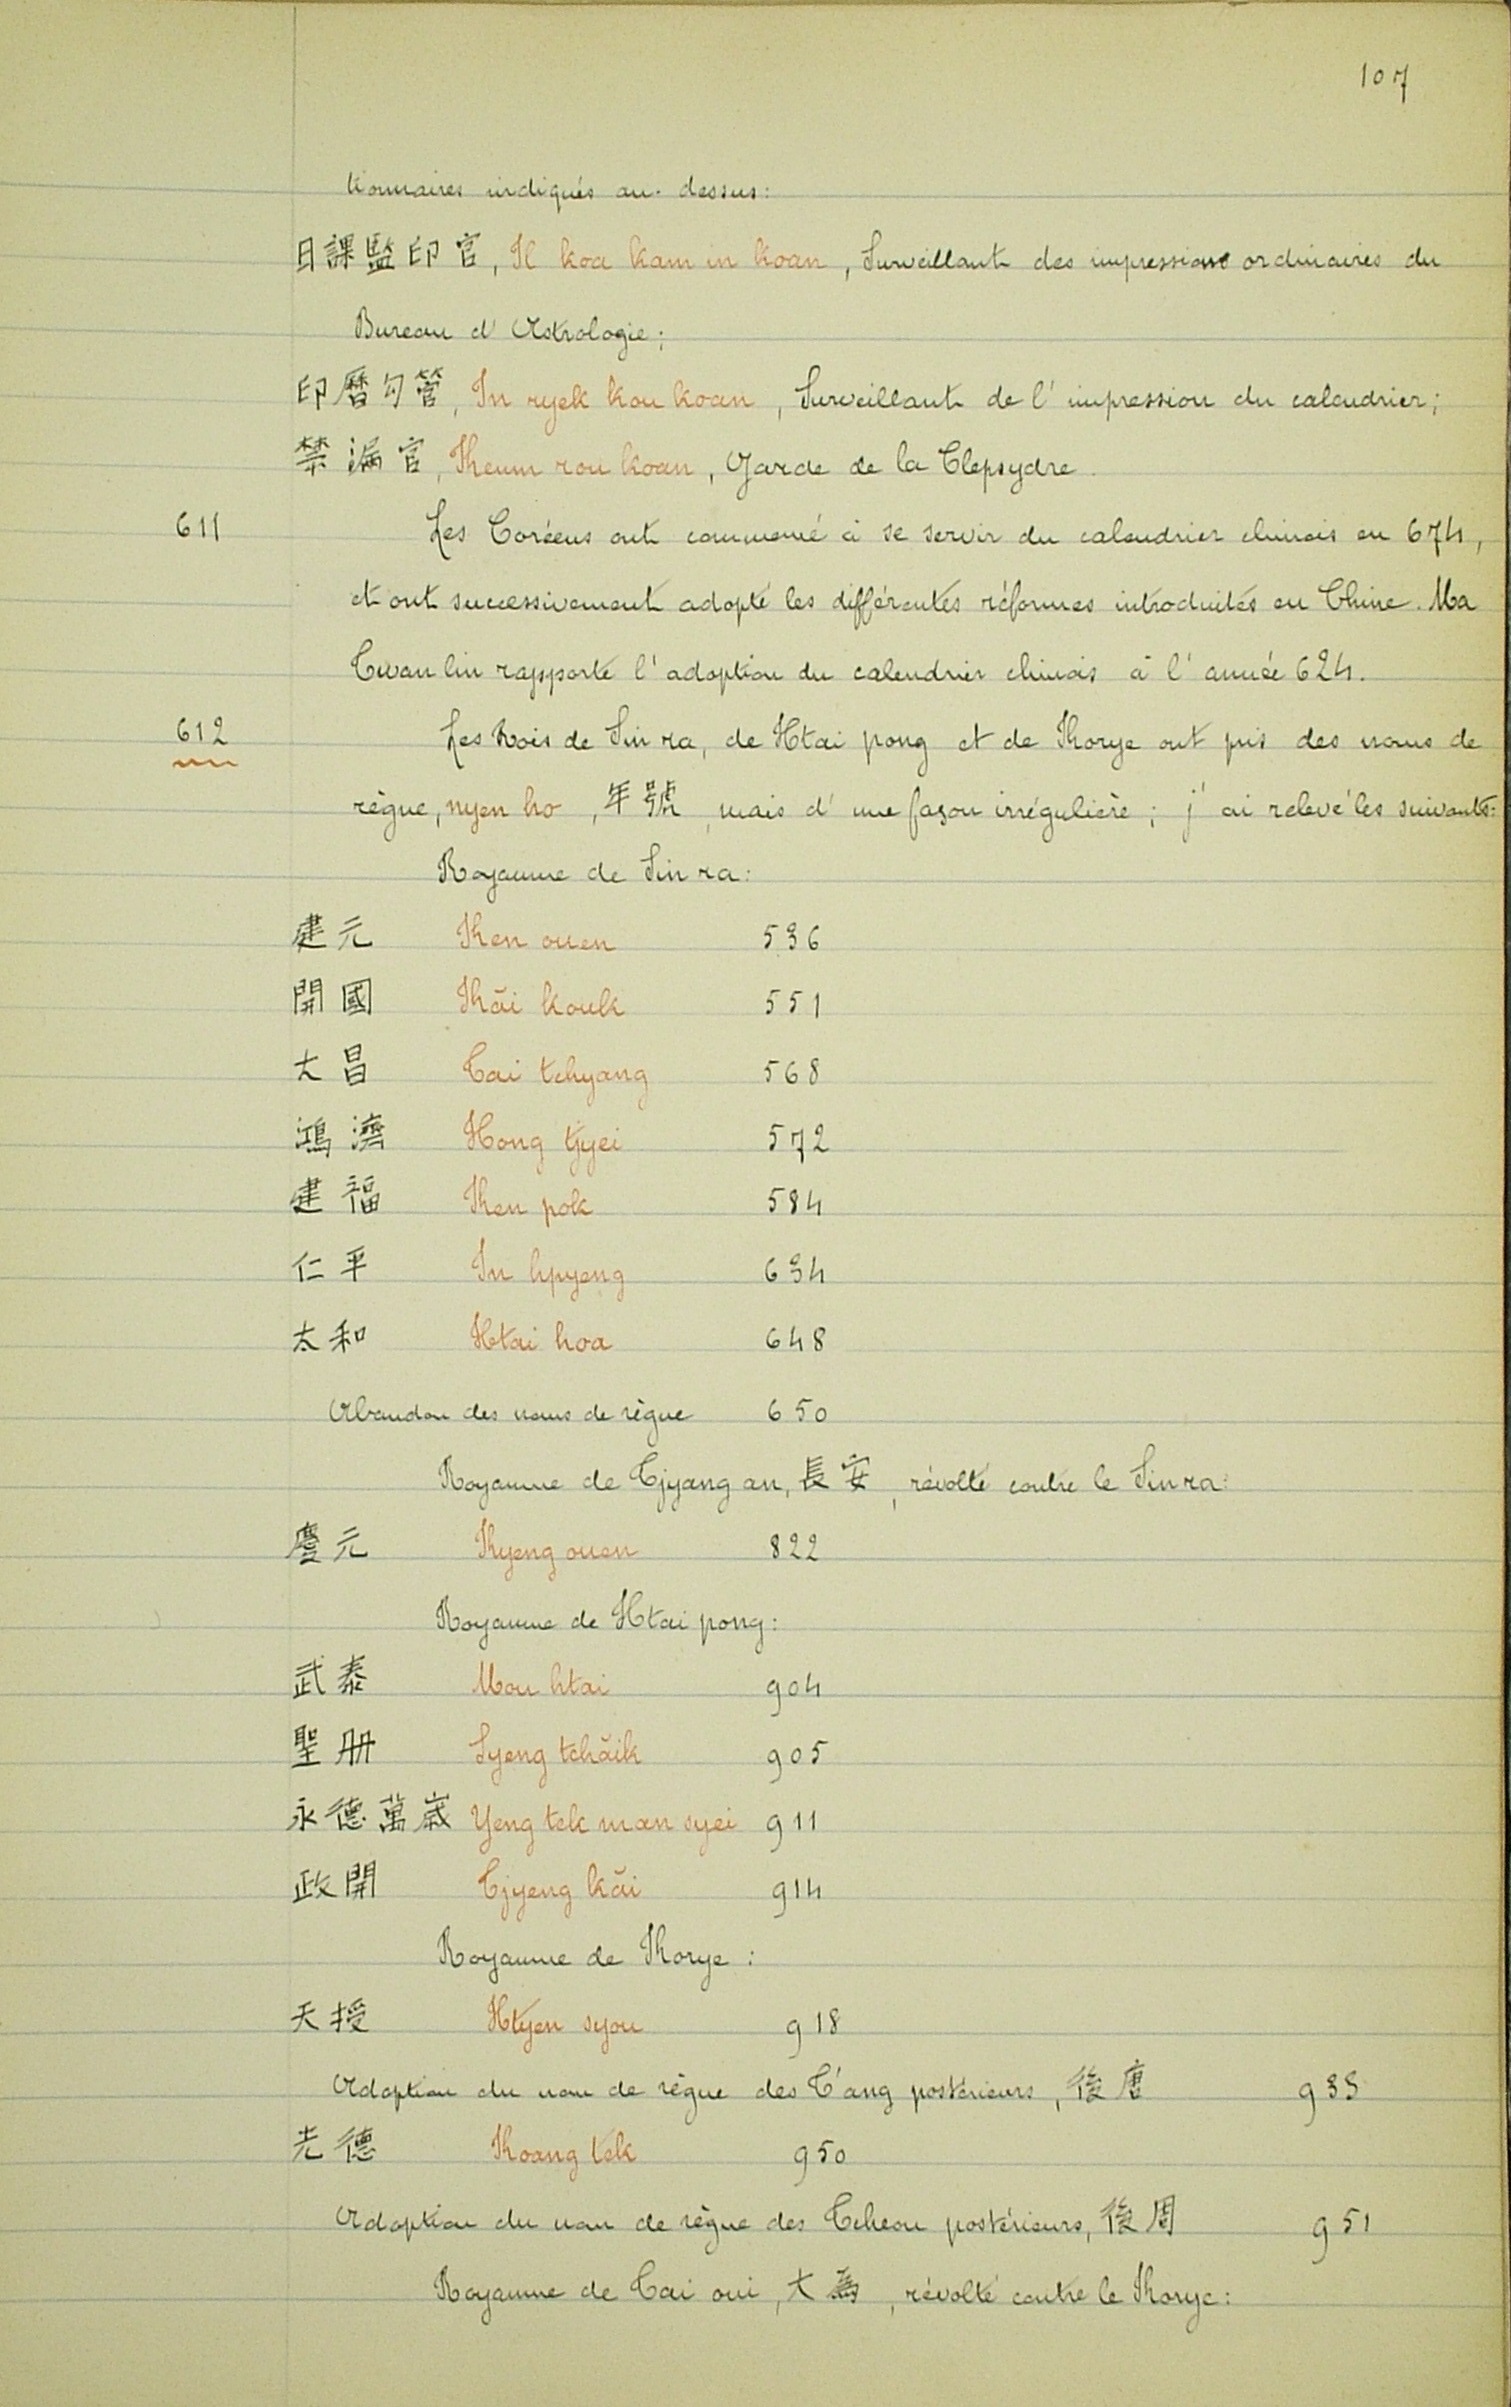 107
tionnaires indiqués au-dessus:
日課監印官, Il koa kam in koan, Surveillant des impressions ordinaires du
Bureau d'Astrologie;
印曆勾管, In ryek kou koan, Surveillant de l'impression du calendrier;
禁漏官, Keum rou koan, Garde de la Clepsydre.
611 Les Coréens ont commencé à se servir du calendrier chinois en 674,
et ont successivement adopté les différentes réformes introduites en Chine. Ma
Twan lin rapporte l'adoption du calendrier chinois à l'année 624.
612 Les Rois de Sin ra, de Htai pong et de Korye ont pris des noms de
règne, nyen ho, 年號, mais d'une façon irrégulière; j'ai relevé les suivants:
Royaume de Sin ra:
建元 Ken ouen 536
開國 Kăi kouk 551
大昌 Tai tchyang 568
鴻濟 Hong tjyei 572
建福 Ken pok 584
仁平 In hpyeng 634
太和 Htai hoa 648
Abandon des noms de règne 650
Royaume de Tjyang an, 長安, révolté contre le Sin ra:
慶元 Kyeng ouen 822
Royaume de Htai pong:
武泰 Mou htai 904
聖册 Syeng tchăik 905
永德萬歲 Yeng tek man syei 911
政開 Tjyeng kăi 914
Royaume de Korye:
天授 Htyen syou 918
Adoption du nom de règne des T'ang postérieurs, 後唐 933
光德 Koang tek 950
Adoption du nom de règne des Tcheou postérieurs, 後周 951
Royaume de Tai oui, 大為, révolté contre le Korye: